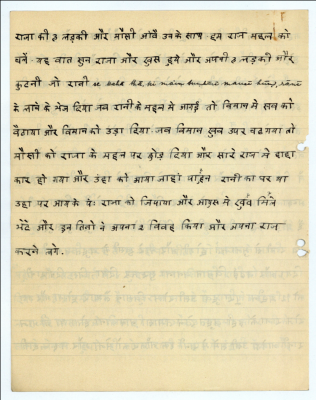 राजा की ७ लड़की और मौसी ओवें उनके साथ हम राज महल को
चलें. यह बात सुन राजा और खुस हुये और अपनी ७ लड़की और
कुटनी जो रानी se kaha tha, ki main tumhari mausi hun,
के लाने के भेज दिया जब रानी के महल में आगई तो विमान में सब को
बैठाया और विमान को उड़ा दिया जब विमान खुब उपर चढ गया तो
मौसी को राजा के महल पर छोड़ दिया और सारे राज में हाहा
कार हो गया और उंहा को आया जाहां रानी का घर था
उहा पर आय के राजा को जियाया और आपुस में खुब
भेंटें और इन तिनो ने अपना २ विवाह किया और अपना राज
करने लगे.